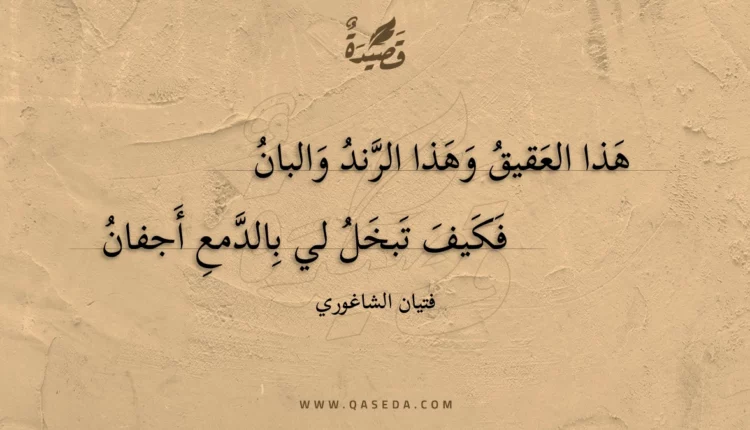 قَصِيْدَةٌ
هَذا العَقيقُ وَهَذا الرَّندُ وَالبانُ
فَكَيفَ تَبخَلُ لي بِالدَّمعِ أَجفانُ
فتيان الشاغوري
WWW.QASEDA.COM